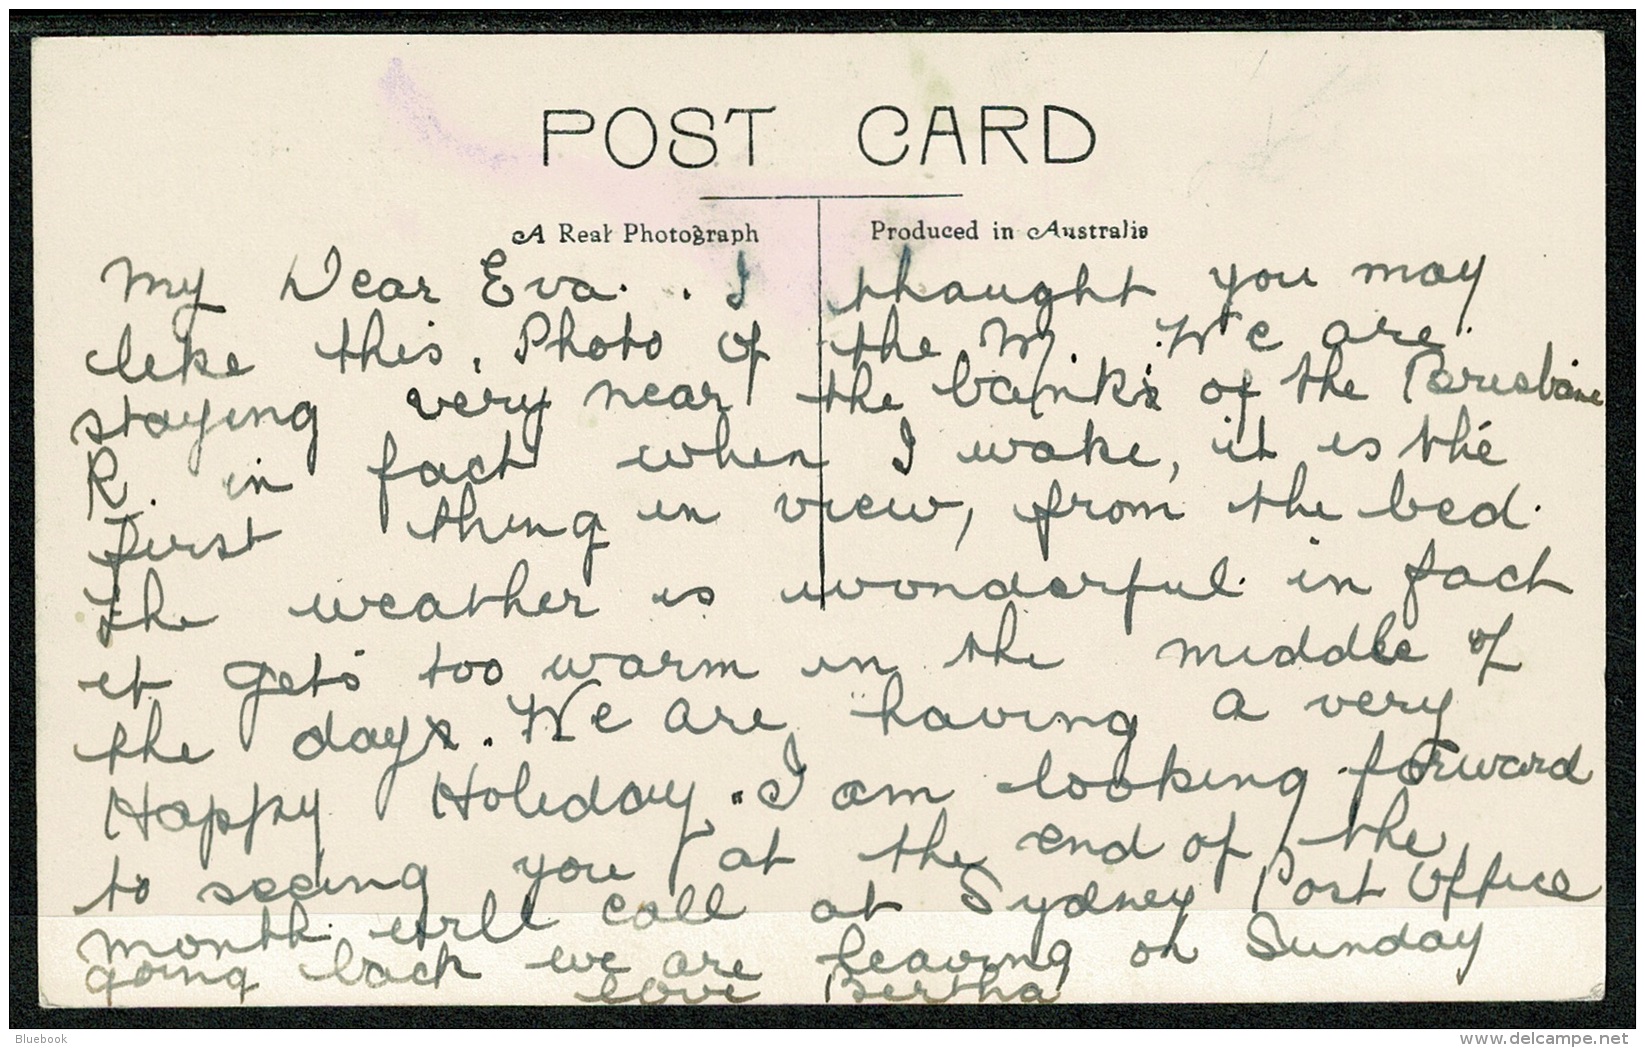 POST CARD
A Real Photograph
Produced in Australia
My Dear Eva. . I thought you may
like this, Photo of the M. We are
staying very near the banks of the Brisbane
R. in fact when I wake, it is the
first thing in view, from the bed.
The weather is wonderful. in fact
it gets too warm in the middle of
the day. We are having a very
Happy Holiday. I am looking forward
to seeing you at the end of the
month will call at Sydney Post Office
going back we are leaving on Sunday
love Bertha
Bluebook
delcampe.net